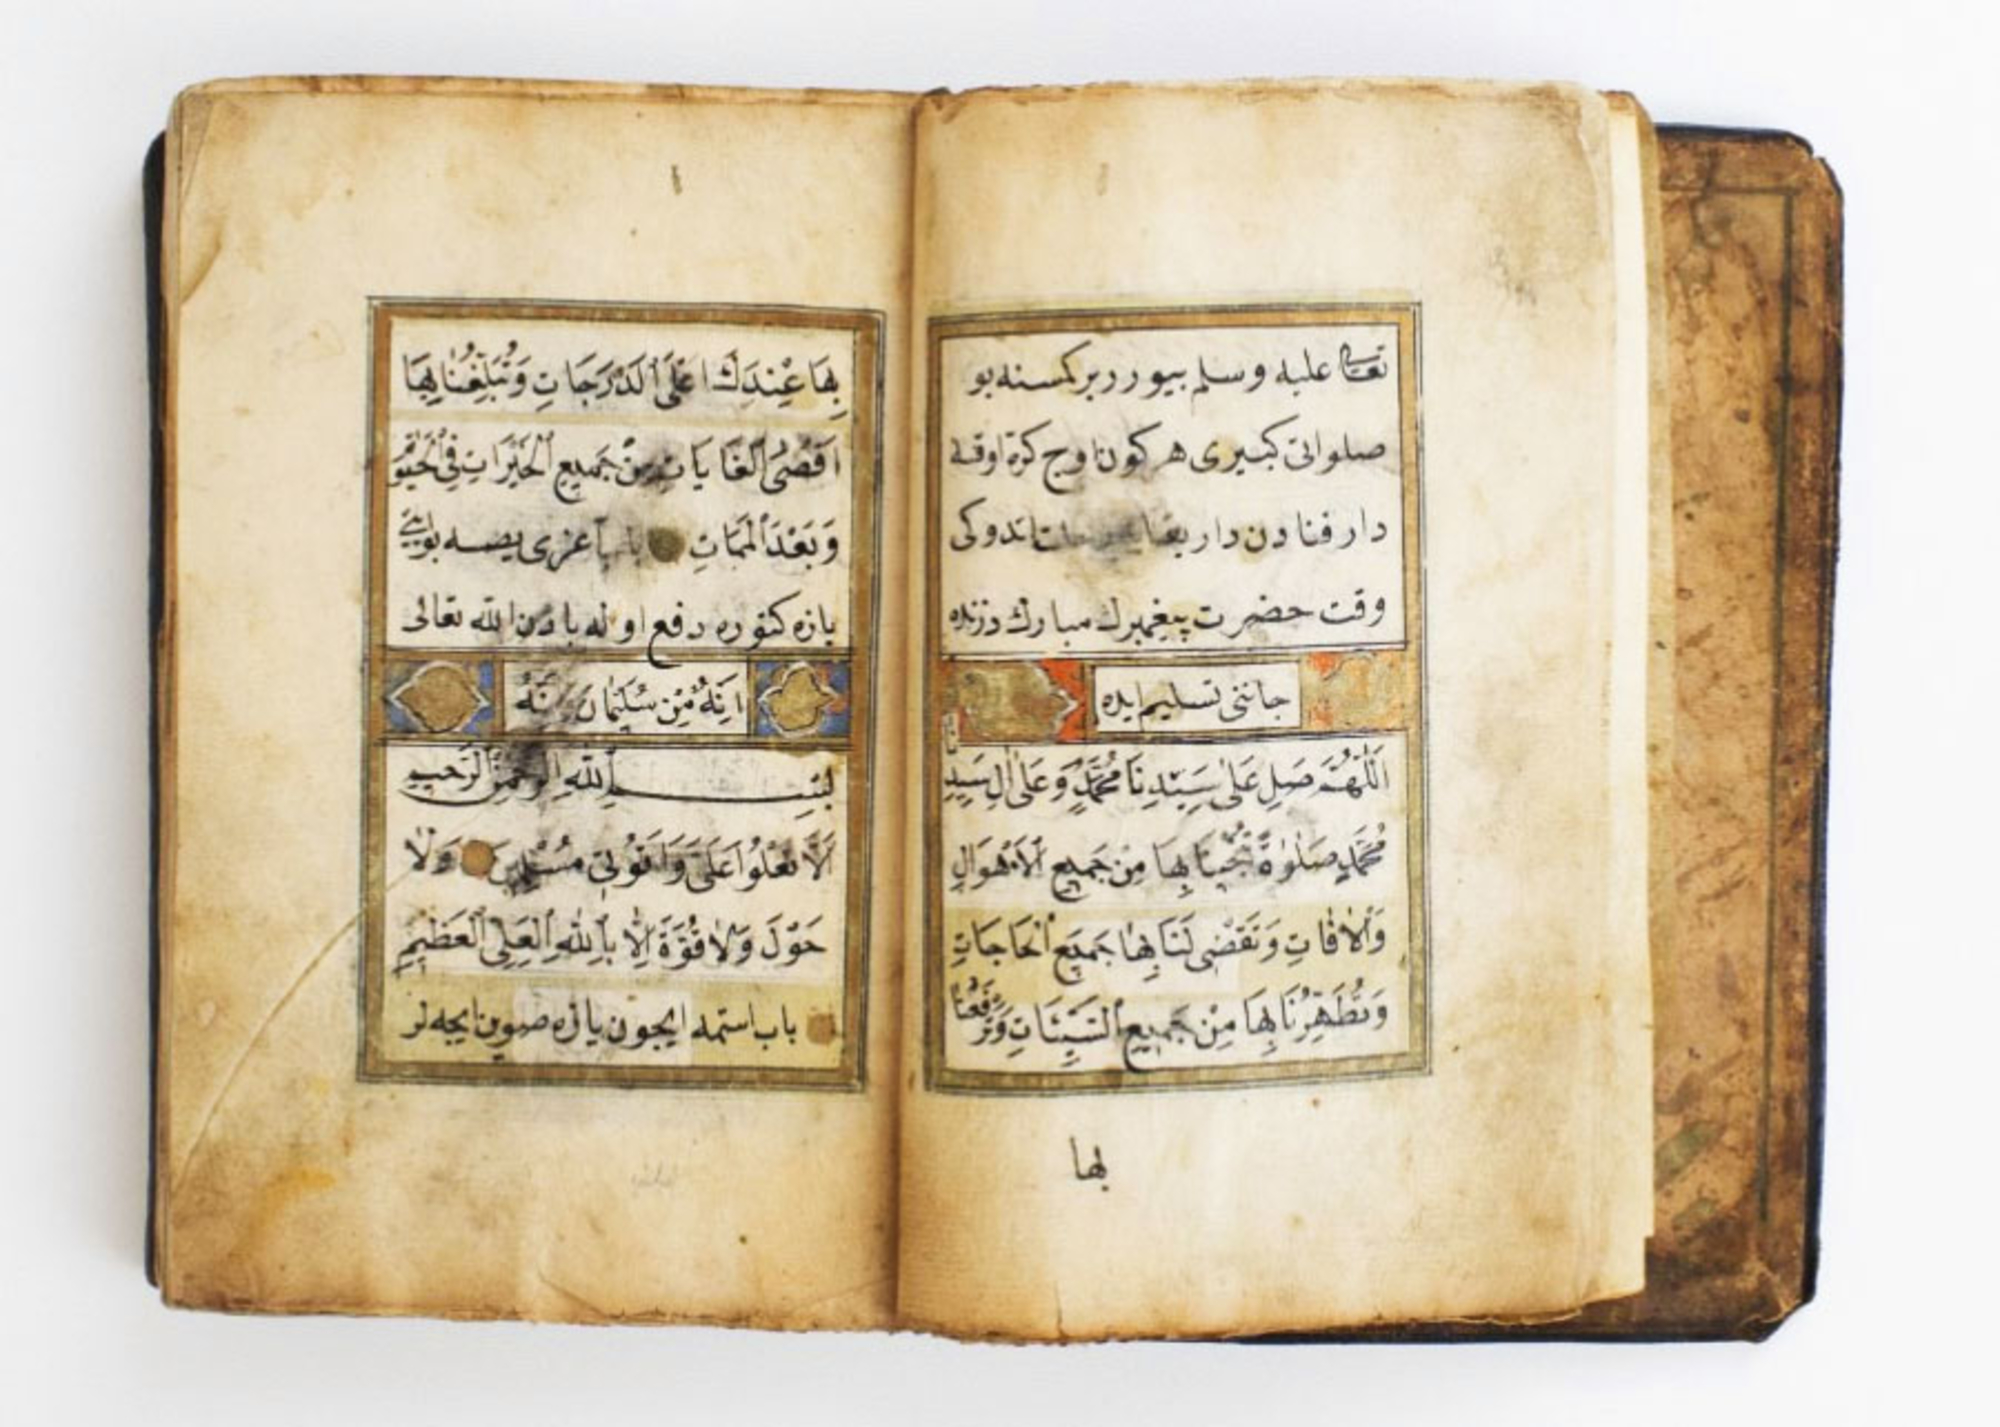 تعالى عليه وسلم بيورر بر كمسنه بو
صلواتى كبيرى هر كون اوج كره اوقسه
دار فنا دن دار بقايه
وقت حضرت پيغمبرك مبارك دزنده
جاننى تسليم ايده
اَللّٰهُمَّ صَلِّ عَلٰى سَيِّدِنَا مُحَمَّدٍ وَعَلٰى اٰلِ سَيِّدِنَا
مُحَمَّدٍ صَلٰوةً تُنْجِينَا بِهَا مِنْ جَمِيعِ الْاَهْوَالِ
وَالْاٰفَاتِ وَتَقْضِى لَنَا بِهَا جَمِيعَ الْحَاجَاتِ
وَتُطَهِّرُنَا بِهَا مِنْ جَمِيعِ السَّيِّئَاتِ وَتَرْفَعُنَا
بها
بِهَا عِنْدَكَ اَعْلَى الدَّرَجَاتِ وَتُبَلِّغُنَا بِهَا
اَقْصَى الْغَايَاتِ مِنْ جَمِيعِ الْخَيْرَاتِ فِى الْحَيٰوةِ
وَبَعْدَ الْمَمَاتِ
يازه كتوره دفع اوله باذن الله تعالى
اِنَّهُ مِنْ سُلَيْمٰانَ وَاِنَّهُ
بِسْمِ اللّٰهِ الرَّحْمٰنِ الرَّحِيمِ
اَلَّا تَعْلُوا عَلَىَّ وَاْتُونِى مُسْلِمِينَ وَلَا
حَوْلَ وَلَا قُوَّةَ اِلَّا بِاللّٰهِ الْعَلِىِّ الْعَظِيمِ
باب استمه ايجون يازه صوين ايجه لر